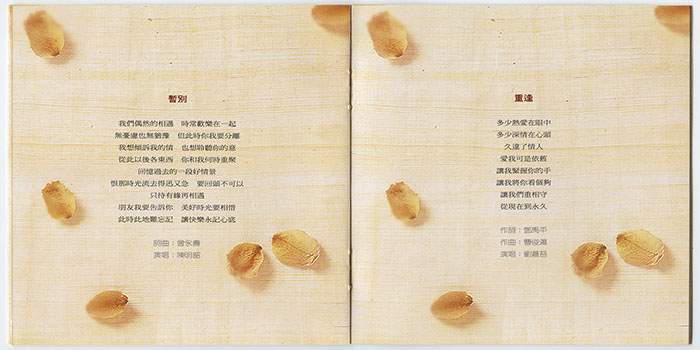 暫別
我們偶然的相遇　時常歡樂在一起
無憂慮也無猶豫　但此時你我要分離
我想傾訴我的情　也想聆聽你的意
從此以後各東西　你和我何時重聚
回憶過去的一段好情景
恨那時光流去得迅又急　要回頭不可以
只待有緣再相遇
朋友我要告訴你　美好時光要相惜
此時此地難忘記　讓快樂永記心底
詞曲：曾永壽
演唱：陳明韶
重逢
多少熱愛在眼中
多少深情在心頭
久違了情人
愛我可是依舊
讓我緊握你的手
讓我將你看個夠
讓我們重相守
從現在到永久
作詞：鄧禹平
作曲：曹俊鴻
演唱：劉藍溪